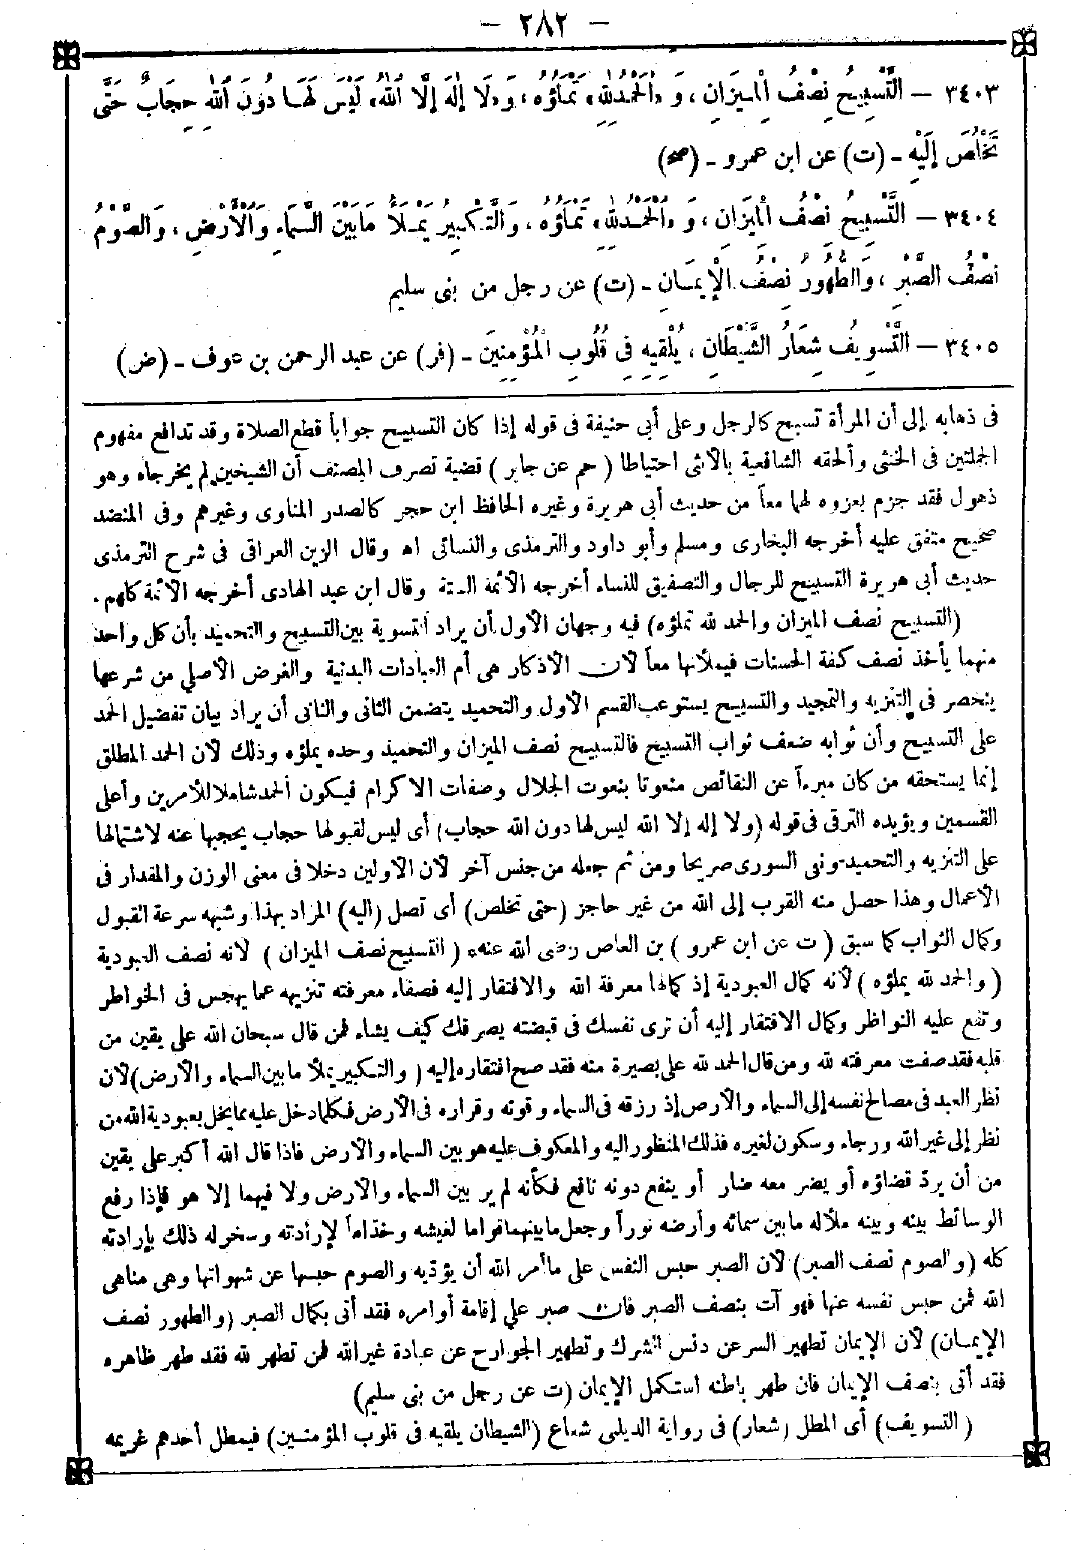 — ٢٨٢ —
٣٤٠٣ — التَّسْبِيحُ نِصْفُ الْمِيزَانِ ، وَ «الْحَمْدُ لِلّٰهِ» تَمْلَؤُهُ ، وَ«لَا إِلٰهَ إِلَّا اللّٰهُ» لَيْسَ لَهَا دُونَ اللّٰهِ حِجَابٌ حَتَّى
تَخْلُصَ إِلَيْهِ ـ (ت) عن ابن عمرو ـ (صح)
٣٤٠٤ — التَّسْبِيحُ نِصْفُ الْمِيزَانِ ، وَ «الْحَمْدُ لِلّٰهِ» تَمْلَؤُهُ ، وَالتَّكْبِيرُ يَمْلَأُ مَابَيْنَ السَّمَاءِ وَالْأَرْضِ ، وَالصَّوْمُ
نِصْفُ الصَّبْرِ ، وَالطُّهُورُ نِصْفُ الْإِيمَانِ ـ (ت) عن رجل من بنى سليم
٣٤٠٥ — التَّسْوِيفُ شِعَارُ الشَّيْطَانِ ، يُلْقِيهِ فِى قُلُوبِ الْمُؤْمِنِينَ ـ (فر) عن عبد الرحمن بن عوف ـ (ض)
فى ذهابه إلى أن المرأة تسبح كالرجل وعلى أبى حنيفة فى قوله إذا كان التسبيح جواباً قطع الصلاة وقد تدافع مفهوم
الجملتين فى الخنثى وألحقه الشافعية بالأنثى احتياطا ( حم عن جابر ) قضية تصرف المصنف أن الشيخين لم يخرجاه وهو
ذهول فقد جزم بعزوه لهما معاً من حديث أبى هريرة وغيره الحافظ ابن حجر كالصدر المناوى وغيرهم وفى المنضد
صحيح متفق عليه أخرجه البخارى ومسلم وأبو داود والترمذى والنسائى اه وقال الزين العراقى فى شرح الترمذى
حديث أبى هريرة التسبيح للرجال والتصفيق للنساء أخرجه الأئمة الستة وقال ابن عبد الهادى أخرجه الأئمة كلهم .
(التسبيح نصف الميزان والحمد لله تملؤه) فيه وجهان الأول أن يراد التسوية بين التسبيح والتحميد بأن كل واحد
منهما يأخذ نصف كفة الحسنات فيملآنها معاً لأن الأذكار هى أم العبادات البدنية والغرض الأصلى من شرعها
ينحصر فى التنزيه والتمجيد والتسبيح يستوعب القسم الأول والتحميد يتضمن الثانى والثانى أن يراد بيان تفضيل الحمد
على التسبيح وأن ثوابه ضعف ثواب التسبيح فالتسبيح نصف الميزان والتحميد وحده يملؤه وذلك لأن الحمد المطلق
إنما يستحقه من كان مبرءاً عن النقائص منعوتا بنعوت الجلال وصفات الاكرام فيكون الحمد شاملا للأمرين وأعلى
القسمين ويؤيده الترقى فى قوله (ولا إله إلا الله ليس لها دون الله حجاب) أى ليس لقبولها حجاب يحجبها عنه لاشتمالها
على التنزيه والتحميد ونفى السوى صريحا ومن ثم جعله من جنس آخر لأن الأولين دخلا فى معنى الوزن والمقدار فى
الأعمال وهذا حصل منه القرب إلى الله من غير حاجز (حتى تخلص) أى تصل (اليه) المراد بهذا وشبهه سرعة القبول
وكمال الثواب كما سبق ( ت عن ابن عمرو ) بن العاص رضى الله عنه ( التسبيح نصف الميزان ) لأنه نصف العبودية
( والحمد لله يملؤه ) لأنه كمال العبودية إذ كمالها معرفة الله والافتقار إليه فصفاء معرفته تنزيهه عما يهجس فى الخواطر
وتقع عليه النواظر وكمال الافتقار إليه أن ترى نفسك فى قبضته يصرفك كيف يشاء فمن قال سبحان الله على يقين من
قلبه فقد صفت معرفته لله ومن قال الحمد لله على بصيرة منه فقد صح افتقاره إليه ( والتكبير يملأ ما بين السماء والأرض) لأن
نظر العبد فى مصالح نفسه إلى السماء والأرض إذ رزقه فى السماء وقوته وقراره فى الأرض فكلما دخل عليه مما يخل بعبودية الله من
نظر إلى غير الله ورجاء وسكون لغيره فذلك المنظور اليه والمعكوف عليه هو بين السماء والأرض فاذا قال الله أكبر على يقين
من أن يردّ قضاؤه أو يضر معه ضار أو ينفع دونه نافع فكأنه لم ير بين السماء والأرض ولا فيهما إلا هو فإذا رفع
الوسائط بينه وبينه ملأ له ما بين سمائه وأرضه نوراً وجعل مابينهما قواما لعيشه وخداماً لإرادته وسخر له ذلك بإرادته
كله (والصوم نصف الصبر) لأن الصبر حبس النفس على ماأمر الله أن يؤدّيه والصوم حبسها عن شهواتها وهى مناهى
الله فمن حبس نفسه عنها فهو آت بنصف الصبر فان صبر على إقامة أوامره فقد أتى بكمال الصبر (والطهور نصف
الإيمـان) لأن الإيمان تطهير السر عن دنس الشرك وتطهير الجوارح عن عبادة غير الله فمن تطهر لله فقد طهر ظاهره
فقد أتى بنصف الإيمان فان طهر باطنه استكمل الإيمان (ت عن رجل من بنى سليم)
( التسويف) أى المطل (شعار) فى رواية الديلمى شعاع (الشيطان يلقيه فى قلوب المؤمنـين) فيمطل أحدهم غريمه